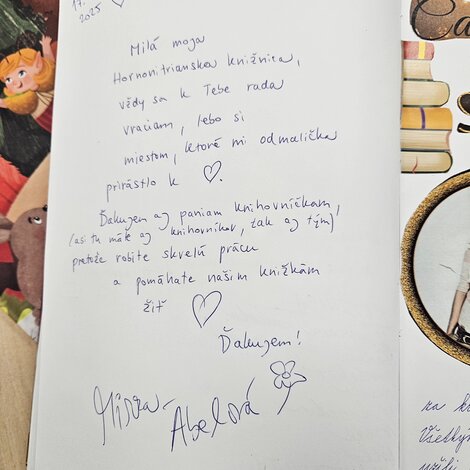 17.
2025 ♡
Milá moja
Hornonitrianska knižnica,
vždy sa k Tebe rada
vraciam, lebo si
miestom, ktoré mi odmalička
prirástlo k ♡.
Ďakujem aj paniam knihovníčkam,
(asi tu máte aj knihovníkov, tak aj tým)
pretože robíte skvelú prácu
a pomáhate našim knižkám
žiť ♡
Ďakujem!
Abelová
za
Všetkým